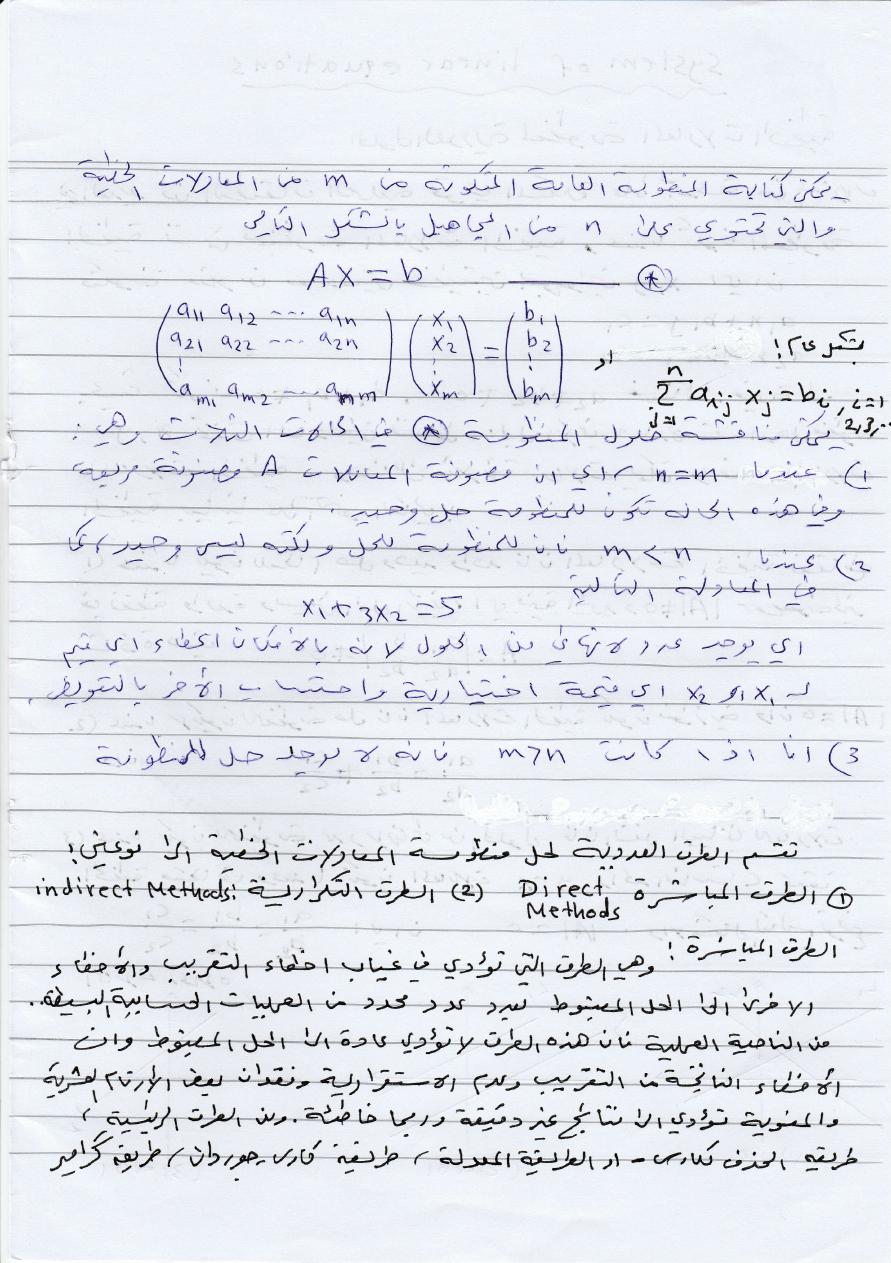 يمكن كتابة المنظومة العامة المتكونة من m من المعادلات الخطية
والتي تحتوي على n من المجاهيل بالشكل التالي
AX = b ——— (*)
(a11 a12 ---- a1n) (x1) = (b1)
(a21 a22 ---- a2n) (x2) (b2) بشكل عام:
(am1 am2 ---- amm) (xm) (bm) او
n Σ j=1 aij xj = bi , i=1 2,3,..
يمكن مناقشة حلول المنظومة (*) في الحالات الثلاث وهي:
1) عندما n=m اي ان مصفوفة المعاملات A مصفوفة مربعة،
وفي هذه الحالة تكون للمنظومة حل وحيد.
2) عندما m < n فان للمنظومة حل ولكنه ليس وحيد، كما
في المعادلة التالية
x1 + 3x2 = 5
اي يوجد عدد لانهائي من الحلول لانه بالأمكان اعطاء اي قيم
لـ x1 او x2 اي قيمة اختيارية واحتساب الأخر بالتعويض.
3) اما اذا كانت m>n فانه لا يوجد حل للمنظومة
تقسم الطرق العددية لحل منظومة المعادلات الخطية الى نوعين:
(1) الطرق المباشرة Direct Methods (2) الطرق التكرارية indirect Methods:
الطرق المباشرة:
وهي الطرق التي تؤدي في غياب اخطاء التقريب والأخطاء
الاخرى الى الحل المضبوط بعدد محدد من العمليات الحسابية البسيطة.
من الناحية العملية فان هذه الطرق لا تؤدي عادة الى الحل المضبوط وان
الأخطاء الناتجة من التقريب وعدم الاستقرارية وفقدان بعض الأرقام العشرية
والمعنوية تؤدي الى نتائج غير دقيقة وربما خاطئة. ومن الطرق الرئيسية،
طريقه الحذف لكاوس - او الطريقة المعدلة، طريقة كاوس-جوردان، طريقة كرامر